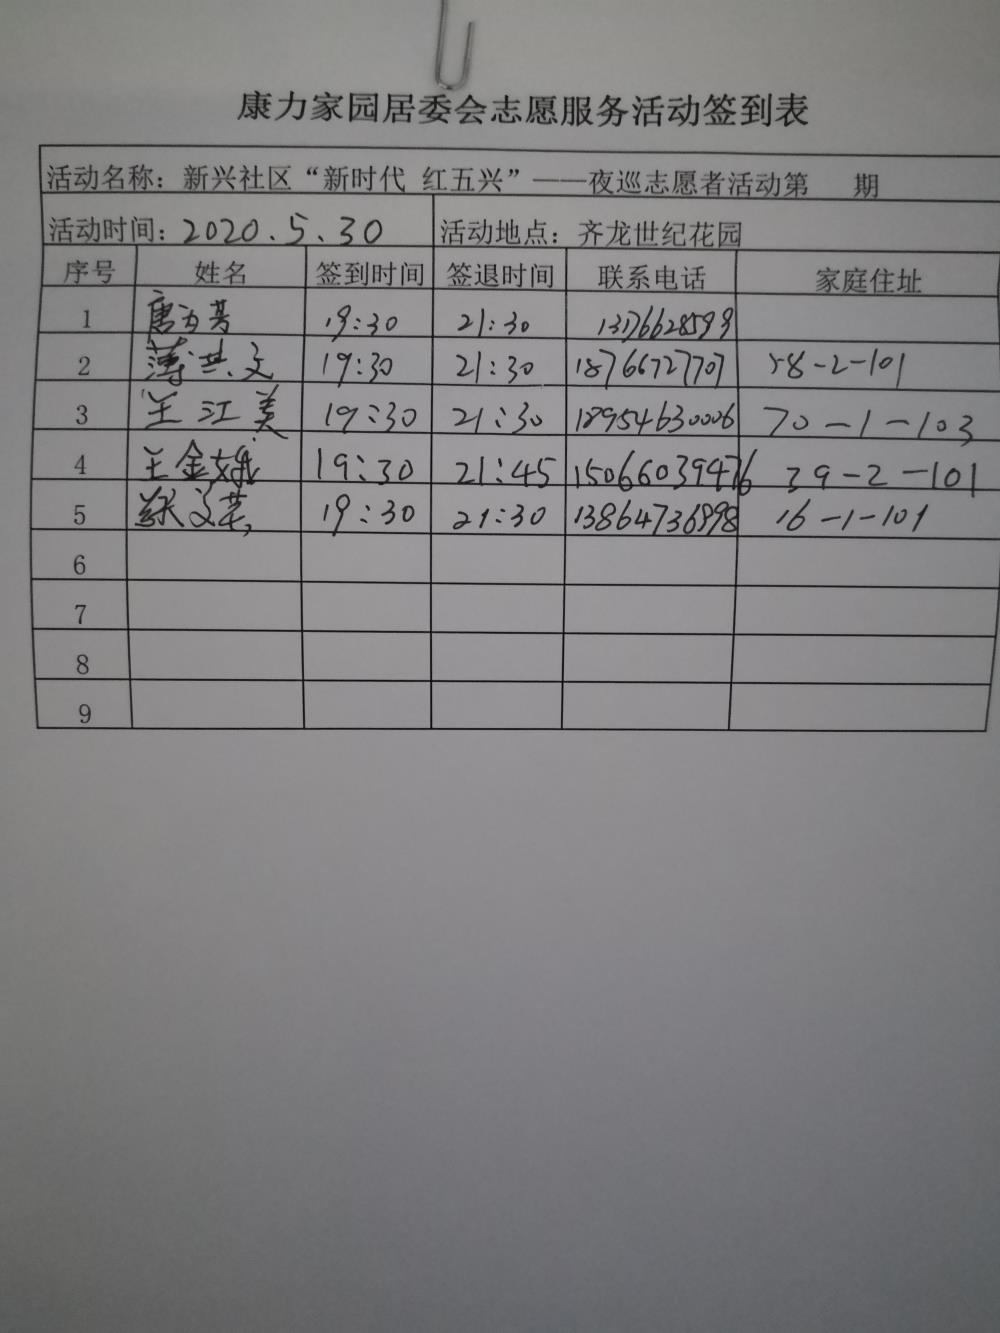 康力家园居委会志愿服务活动签到表
活动名称：新兴社区“新时代 红五兴”——夜巡志愿者活动第 期
活动时间：2020.5.30 活动地点：齐龙世纪花园
序号 姓名 签到时间 签退时间 联系电话 家庭住址
1 19:30 21:30 13176628599
2 薄洪文 19:30 21:30 18766727707 58-2-101
3 王江美 19:30 21:30 18954630006 70-1-103
4 王金娥 19:30 21:45 15066039476 39-2-101
5 19:30 21:30 13864736998 16-1-101
6
7
8
9